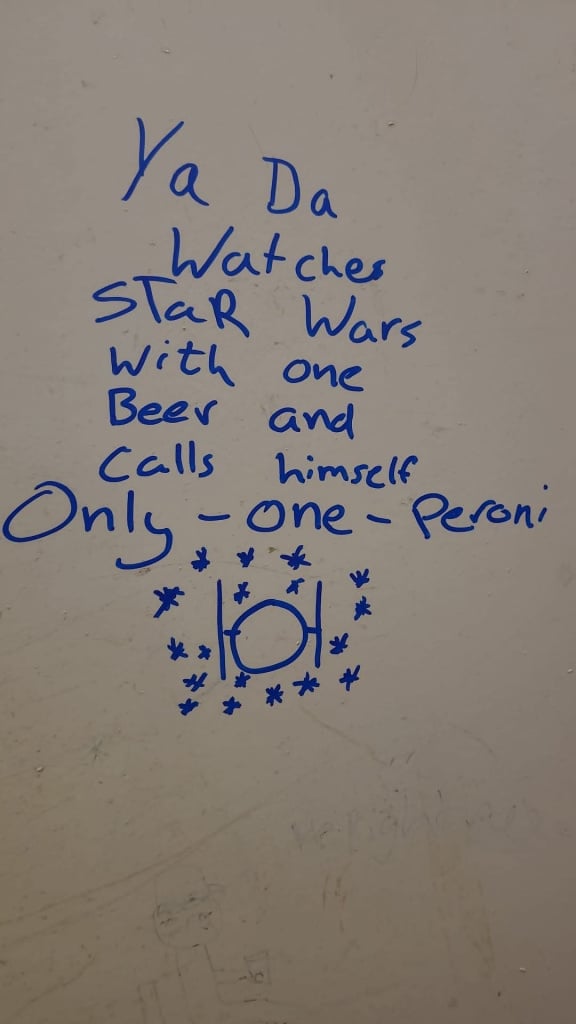 Ya Da
Watches
STaR Wars
With one
Beer and
Calls himself
Only-one-Peroni